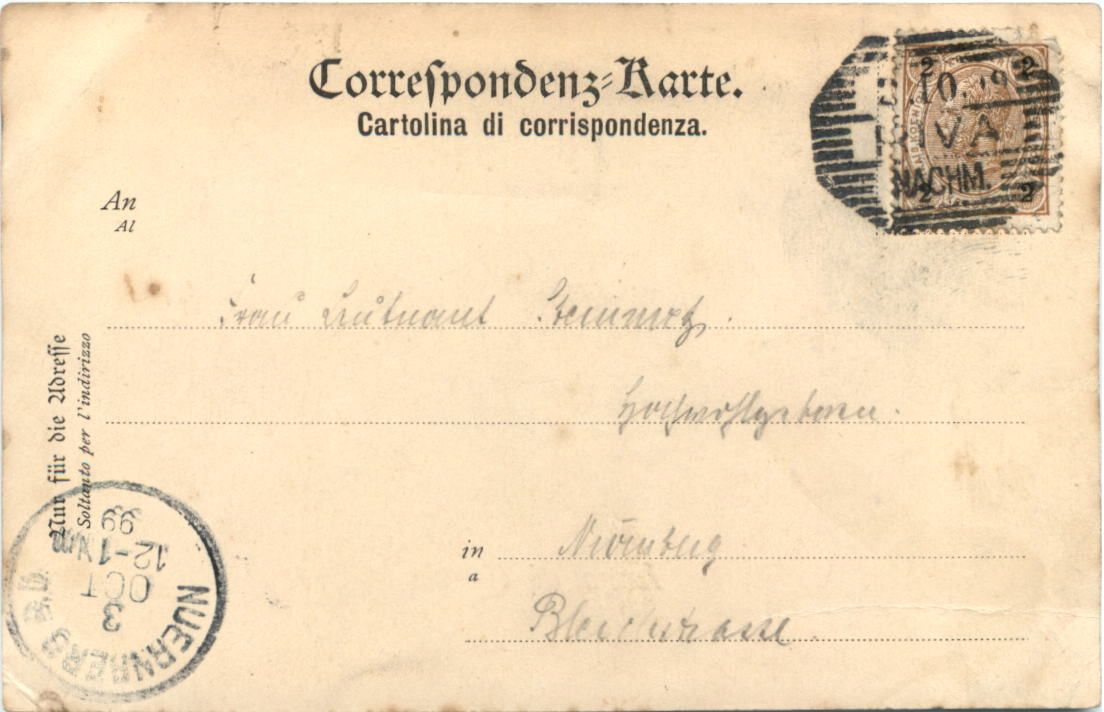 Correspondenz-Karte.
Cartolina di corrispondenza.
2 2
10.
VA
NACHM.
2 2
An
Al
Frau Leutnant Steinmetz.
Hochwohlgeboren.
in Nürnberg
a
Bleichstrasse.
Nur für die Adresse
Soltanto per l'indirizzo
NUERNBERG
3
OCT
12-1 Nm
99